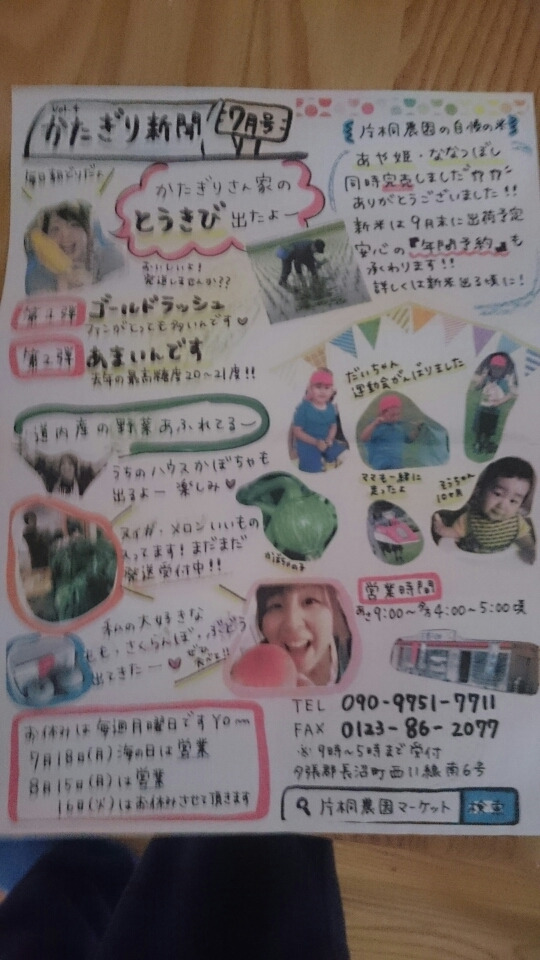 かたぎり新聞 7月号
毎日朝どりだよ
かたぎりさん家の
とうきび出たよー
おいしいよ!
発送しませんか??
片桐農園の自慢の米
あや姫・ななつぼし
同時完売しました
ありがとうございました!!
新米は9月末に出荷予定
安心の『年間予約』も
承わります!!
詳しくは新米出る頃に!
第1弾 ゴールドラッシュ
ファンがとっても多いんです
第2弾 あまいんです
去年の最高糖度20~21度!!
だいちゃん
運動会がんばりました
道内産の野菜あふれてるー
うちのハウスかぼちゃも
出るよー 楽しみ
ママも一緒に
走ったよ
そうちゃん
10ヶ月
かぼちゃの子
スイカ、メロンいいもの
入ってます!まだまだ
発送受付中!!
私の大好きな
もも・さくらんぼ・ぶどう
出てきたー
ぜひ
食べて!!
営業時間
あさ9:00~夕方4:00~5:00頃
TEL 090-9751-7711
FAX 0123-86-2077
※9時~5時まで受付
夕張郡長沼町西11線南6号
お休みは毎週月曜日ですYo~
7月18日(月)海の日は営業
8月15日(月)は営業
16日(火)はお休みさせて頂きます
片桐農園マーケット 検索